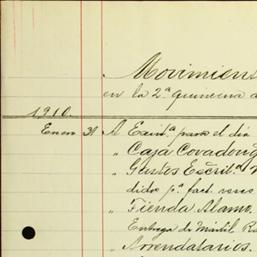 Movimien
en la 2ª quincena d
1910.
Enero 31 A Exist.ª para el dia
" Caja Covadong
" Gastos Escrit.º
didos p.ª fact.
" Tienda Alamo.
Entrega de M...
" Arrendatarios.